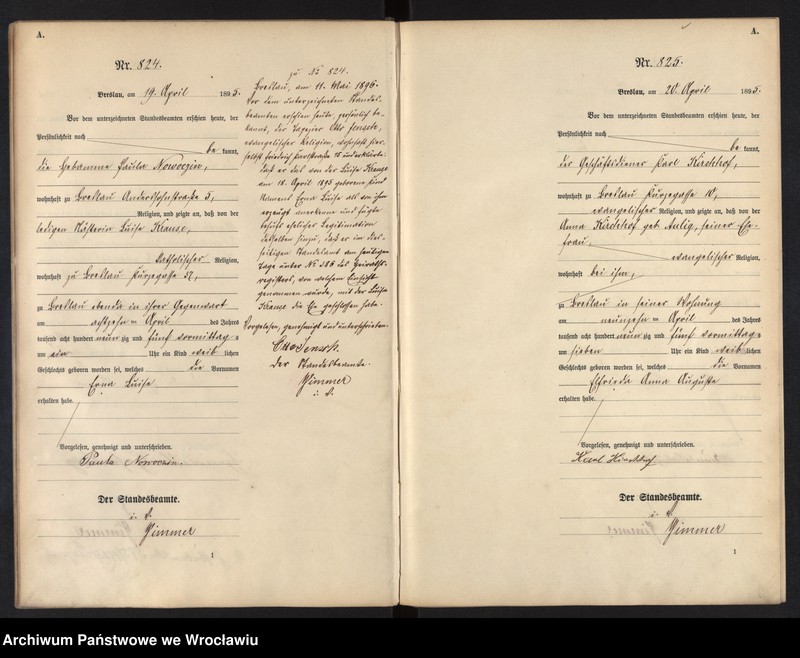 A.
Nr. 824.
Breslau, am 19. April 1895.
Vor dem unterzeichneten Standesbeamten erschien heute, der
Persönlichkeit nach
be kannt,
die Hebamme Paula Nowoczin,
wohnhaft zu Breslau Anderssohnstraße 5,
Religion, und zeigte an, daß von der
ledigen Luise Krause,
katholischer Religion,
wohnhaft zu Breslau Kürzegasse
zu Breslau in ihrer Gegenwart
am achtzehn ten April des Jahres
tausend acht hundert neun zig und fünf Vormittag s
um ein Uhr ein Kind weib lichen
Geschlechts geboren worden sei, welches die Vornamen
Erna Luise
erhalten habe.
Vorgelesen, genehmigt und unterschrieben.
Paula Nowoczin.
Der Standesbeamte.
i. V.
Zimmer
1
zu No 824.
Breslau, am 11. Mai 1896.
Vor dem unterzeichneten Standes-
beamten erschien heute, persönlich be-
kannt, der Tapezier Otto Jensch,
evangelischer Religion, wohnhaft hier-
selbst Friedrich Karlstraße und erklärte,
daß er das von der Luise Krause
am 18. April 1895 geborene Kind
Namens Erna Luise als von ihm
erzeugt anerkenne und fügte
behufs ehelicher Legitimation
desselben hinzu, daß er im dies-
seitigen Standesamt am heutigen
Tage unter No 385 des Heiraths-
registers, von welchem Einsicht
genommen wurde, mit der Luise
Krause die Ehe geschlossen habe.
Vorgelesen, genehmigt und unterschrieben.
Otto Jensch.
Der Standesbeamte.
Zimmer
i. V.
A.
Nr. 825.
Breslau, am 20. April 1895.
Vor dem unterzeichneten Standesbeamten erschien heute, der
Persönlichkeit nach
be kannt,
der Geschäftsdiener Karl Kirchhof,
wohnhaft zu Breslau Kürzegasse 10,
evangelischer Religion, und zeigte an, daß von der
Anna Kirchhof geb. Aulig, seiner Ehe-
frau,
evangelischer Religion,
wohnhaft bei ihm,
zu Breslau in seiner Wohnung
am neunzehn ten April des Jahres
tausend acht hundert neun zig und fünf Vormittag s
um sieben Uhr ein Kind weib lichen
Geschlechts geboren worden sei, welches die Vornamen
Elfrieda Anna Auguste
erhalten habe.
Vorgelesen, genehmigt und unterschrieben.
Karl Kirchhof
Der Standesbeamte.
i. V.
Zimmer
1
Archiwum Państwowe we Wrocławiu